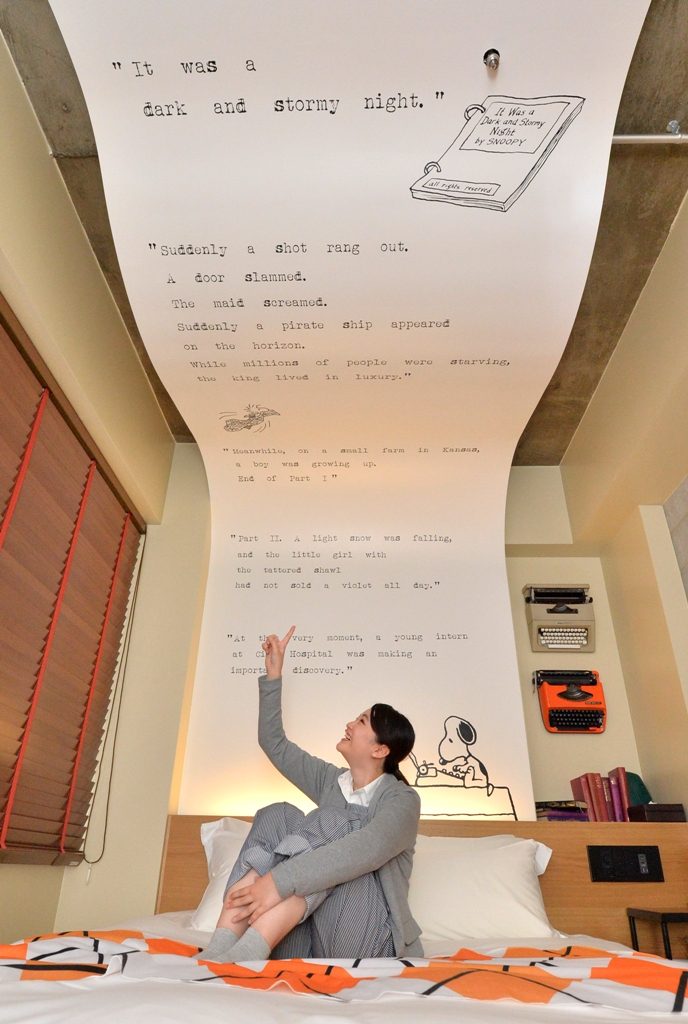 "It was a
dark and stormy night."
It Was a
Dark and Stormy
Night
by SNOOPY
all rights reserved
"Suddenly a shot rang out.
A door slammed.
The maid screamed.
Suddenly a pirate ship appeared
on the horizon.
While millions of people were starving,
the king lived in luxury."
"Meanwhile, on a small farm in Kansas,
a boy was growing up.
End of Part I"
"Part II. A light snow was falling,
and the little girl with
the tattered shawl
had not sold a violet all day."
"At the very moment, a young intern
at City Hospital was making an
important discovery."